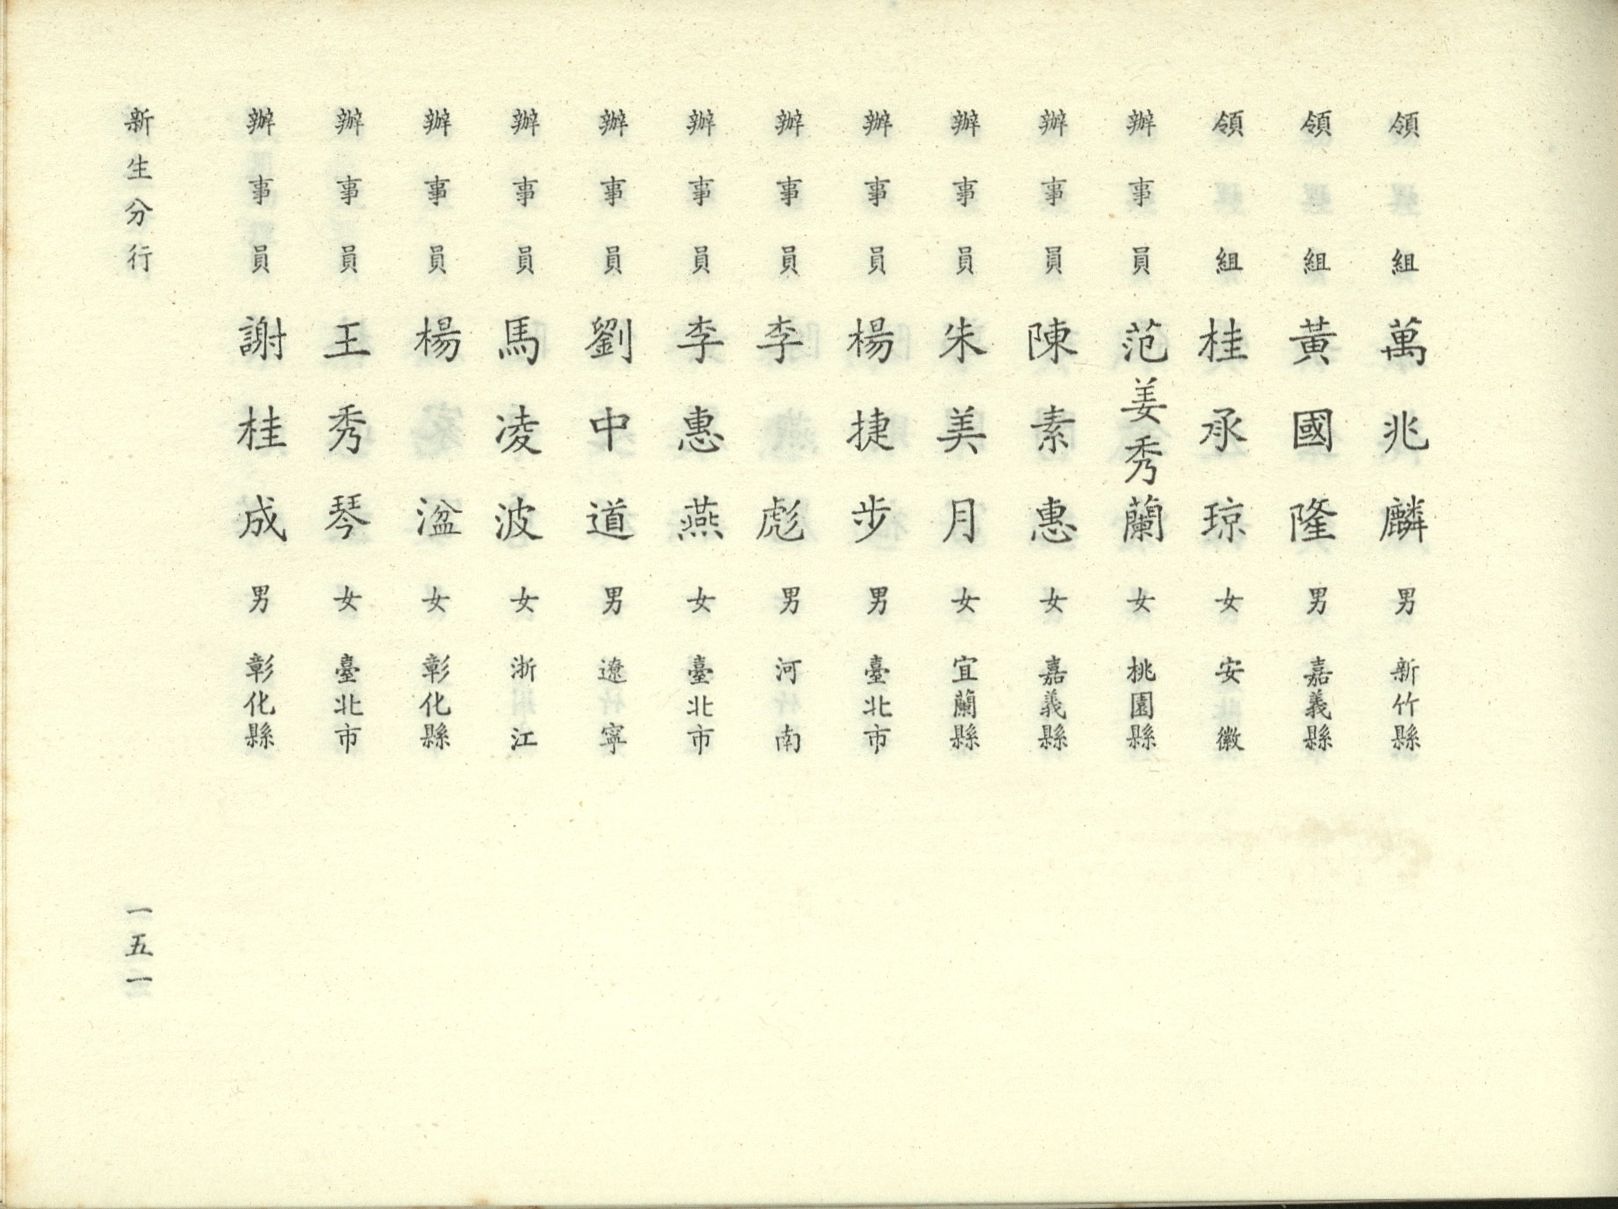 領組萬兆麟男新竹縣
領組黃國隆男嘉義縣
領組桂承琼女安徽
辦事員范姜秀蘭女桃園縣
辦事員陳素惠女嘉義縣
辦事員朱美月女宜蘭縣
辦事員楊捷步男臺北市
辦事員李彪男河南
辦事員李惠燕女臺北市
辦事員劉中道男遼寧
辦事員馬凌波女浙江
辦事員楊湓女彰化縣
辦事員王秀琴女臺北市
辦事員謝桂成男彰化縣
新生分行
一五一